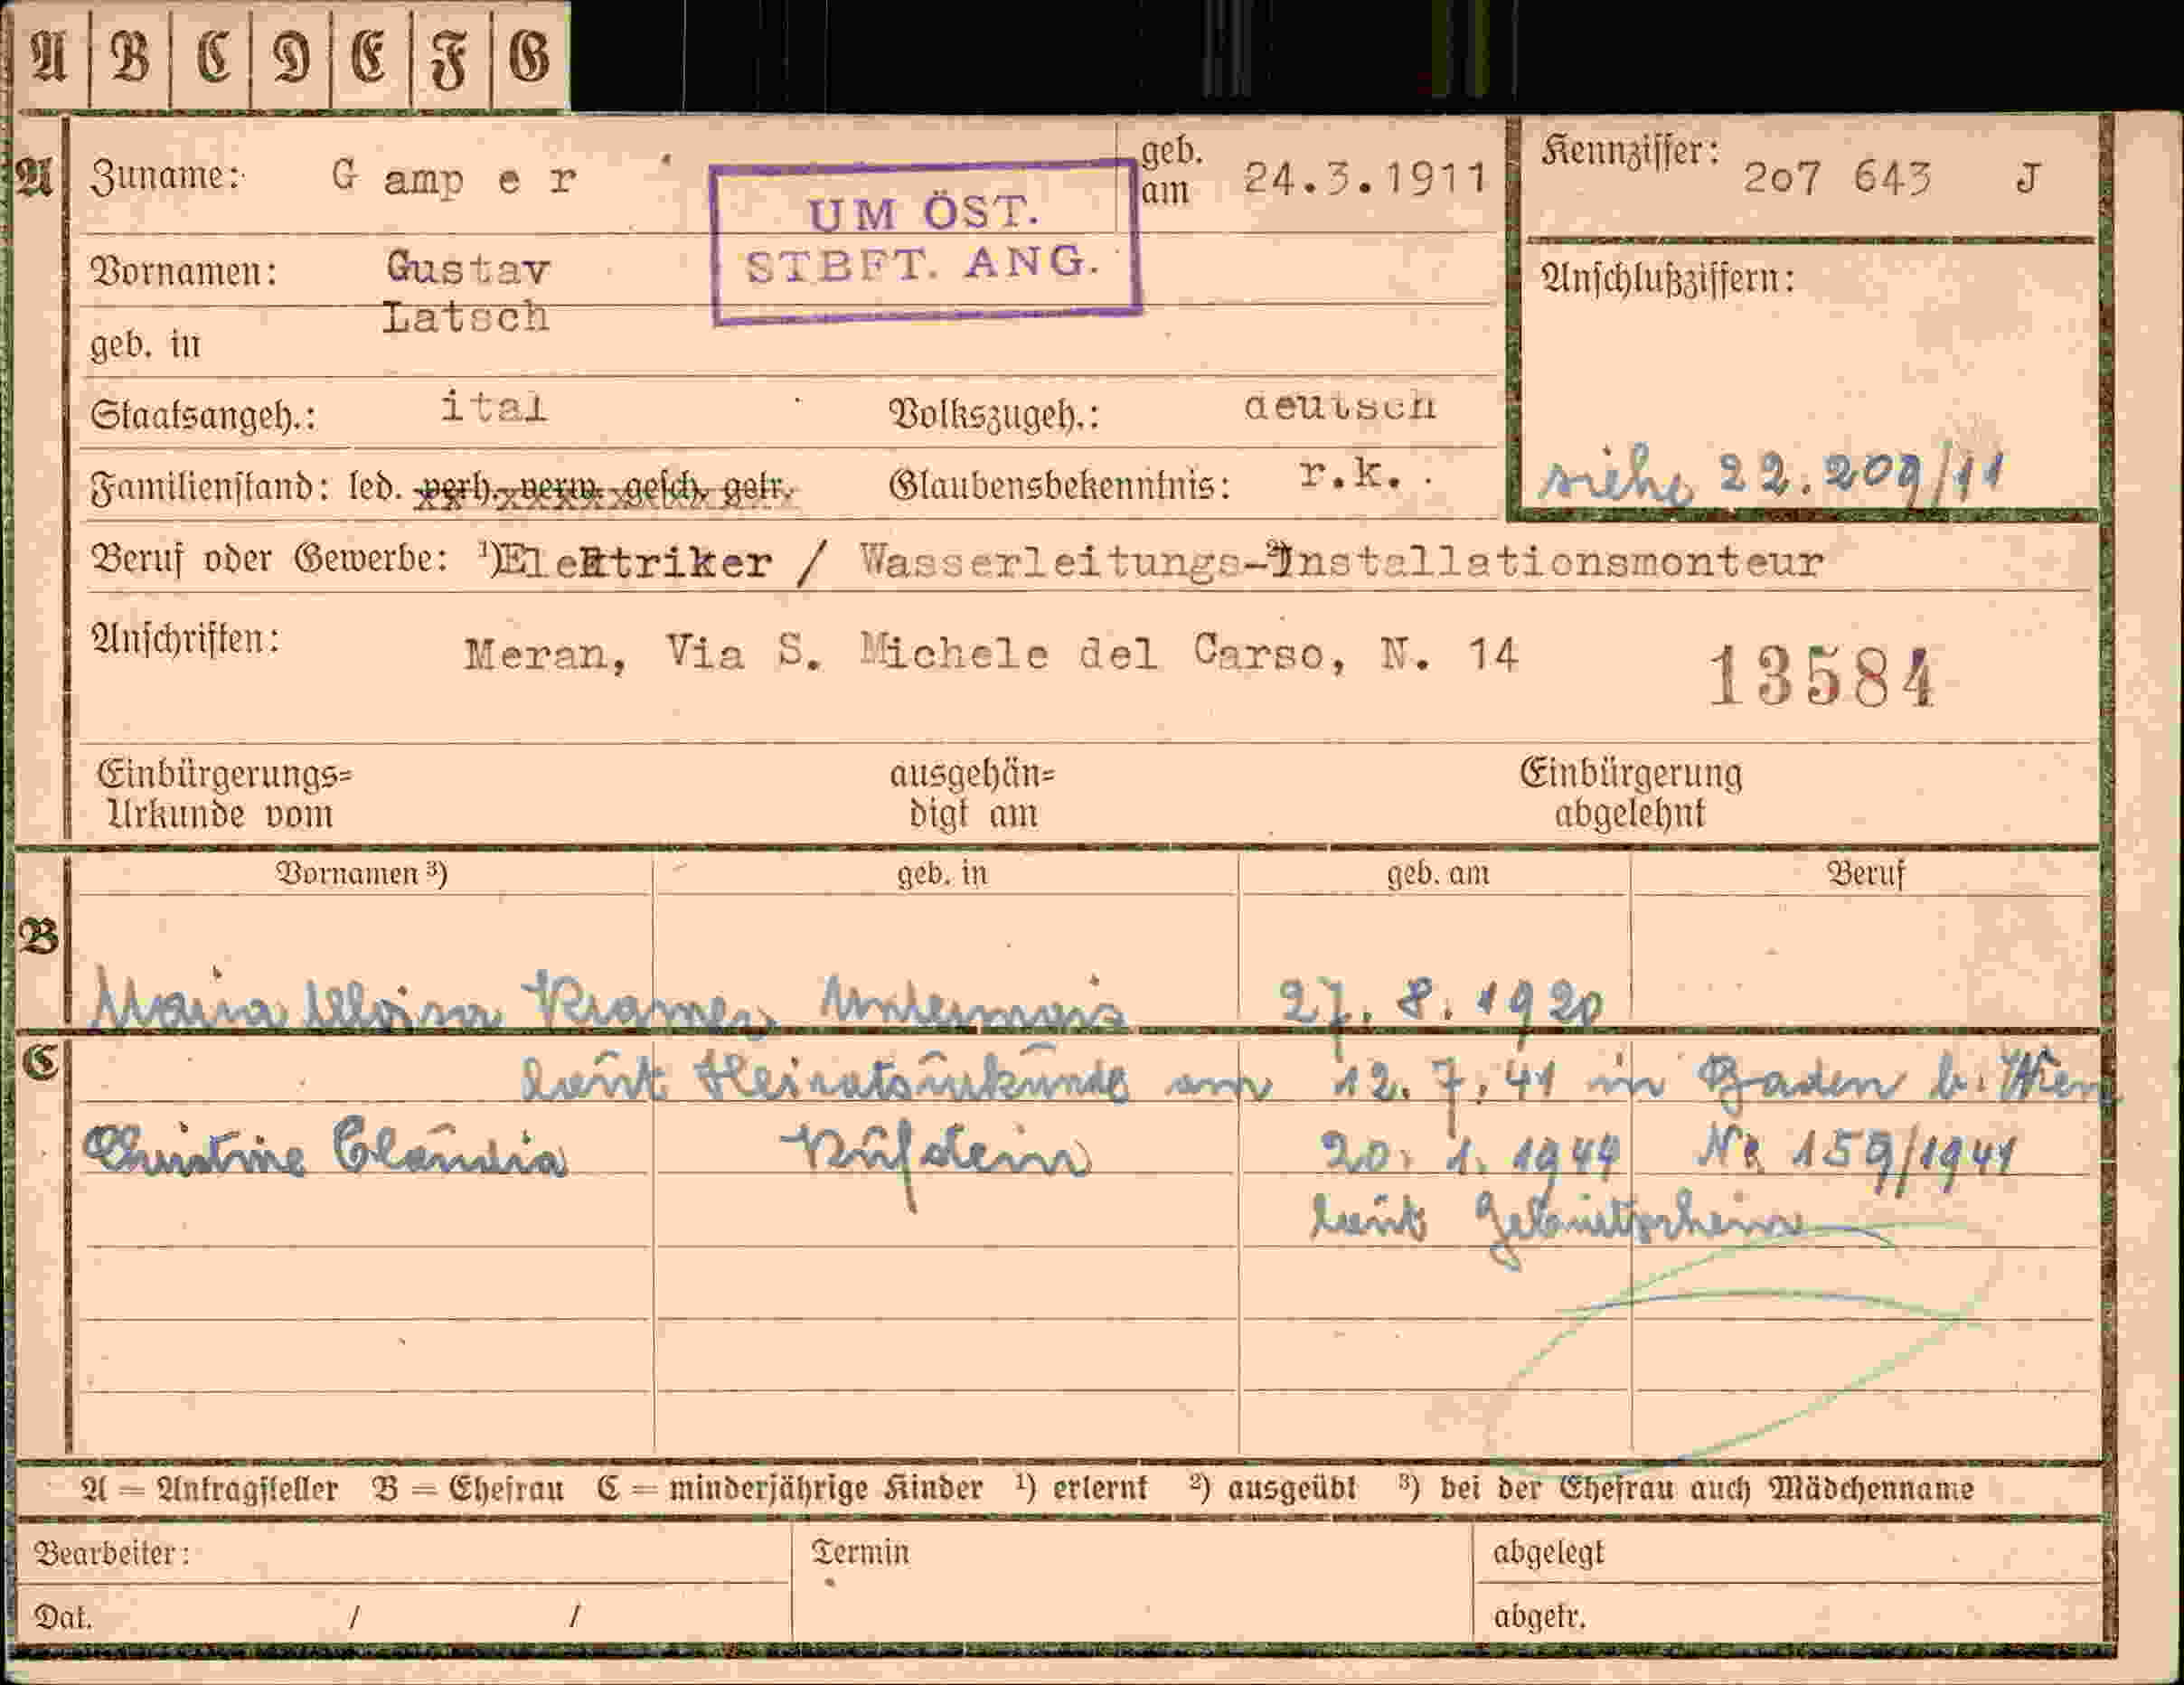 A B C D E F G
A Zuname: G amp e r geb. am 24.3.1911 Kennziffer: 2o7 643 J
UM ÖST.
STBFT. ANG.
Vornamen: Gustav Anschlußziffern:
geb. in Latsch
Staatsangeh.: ital Volkszugeh.: deutsch
Familienstand: led. verh. verw. gesch. getr. Glaubensbekenntnis: r.k. . siehe 22.209/11
Beruf oder Gewerbe: ¹)Elektriker / Wasserleitungs-²)Installationsmonteur
Anschriften: Meran, Via S. Michele del Carso, N. 14 13584
Einbürgerungs= ausgehän= Einbürgerung
Urkunde vom digt am abgelehnt
Vornamen ³) geb. in geb. am Beruf
B
Maria Aloisia Kramer Untermais 27. 8. 1920
C
laut Heiratsurkunde am 12. 7. 41 in Baden b. Wien
Christine Claudia Kufstein 20. 1. 1944 Nr. 159/1941
laut Geburtsschein
A = Antragsteller B = Ehefrau C = minderjährige Kinder ¹) erlernt ²) ausgeübt ³) bei der Ehefrau auch Mädchenname
Bearbeiter: Termin abgelegt
Dat. / / abgetr.